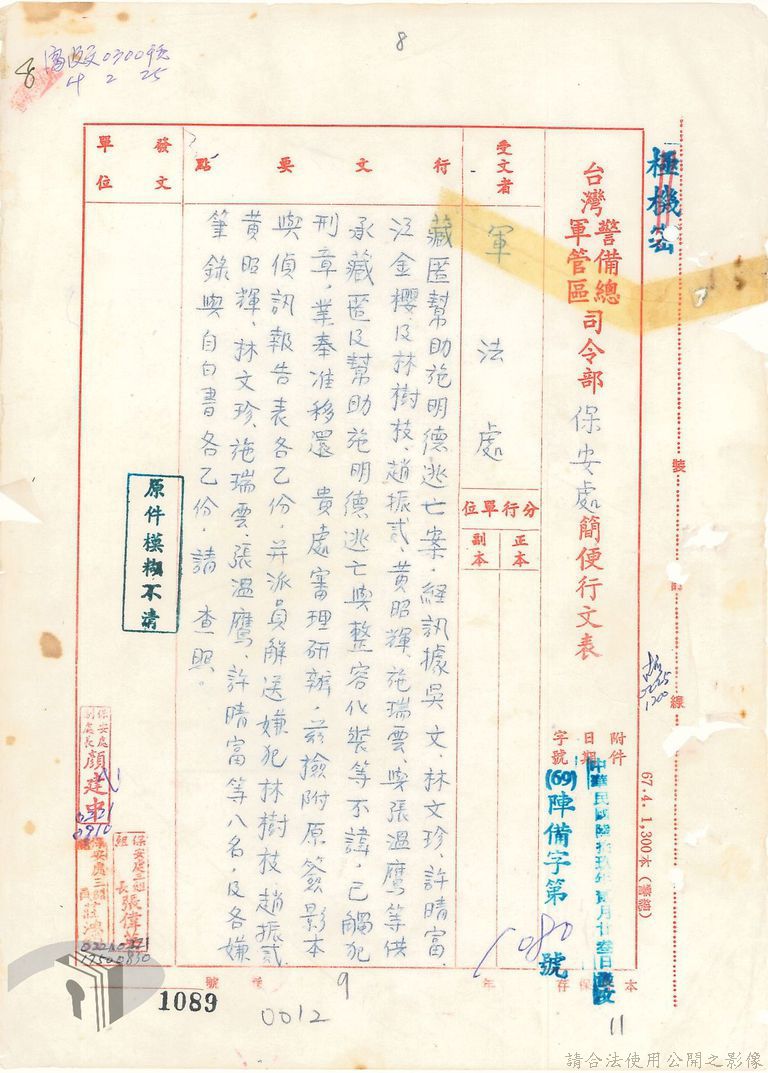 8
8
極機密
台灣警備總司令部
軍管區
保安處簡便行文表
裝
訂
線
67.4. 1,300本
附件
日期
中華民國陸拾玖年貳月廿叁日發文
字號
(69)陣備字第1080號
受文者
軍法處
分行單位
正本
副本
行文要點
藏匿幫助施明德逃亡案，經訊據吳文、林文珍、許晴富、
江金櫻、及林樹枝、趙振貳、黃昭輝、施瑞雲、與張溫鷹等供
承藏匿及幫助施明德逃亡與整容化裝等不諱，已觸犯
刑章，業奉准移還 貴處審理研辦，茲撿附原簽影本
與偵訊報告表各乙份，并派員解送嫌犯林樹枝、趙振貳、
黃昭輝、林文珍、施瑞雲、張溫鷹、許晴富等八名，及各嫌
筆錄與自白書各乙份，請 查照。
發文單位
原件模糊不清
保安處副處長顏建中
0221
0910
保安處三組組長張偉
0221
0830
保安處三組
1089
0012
9
11
請合法使用公開之影像